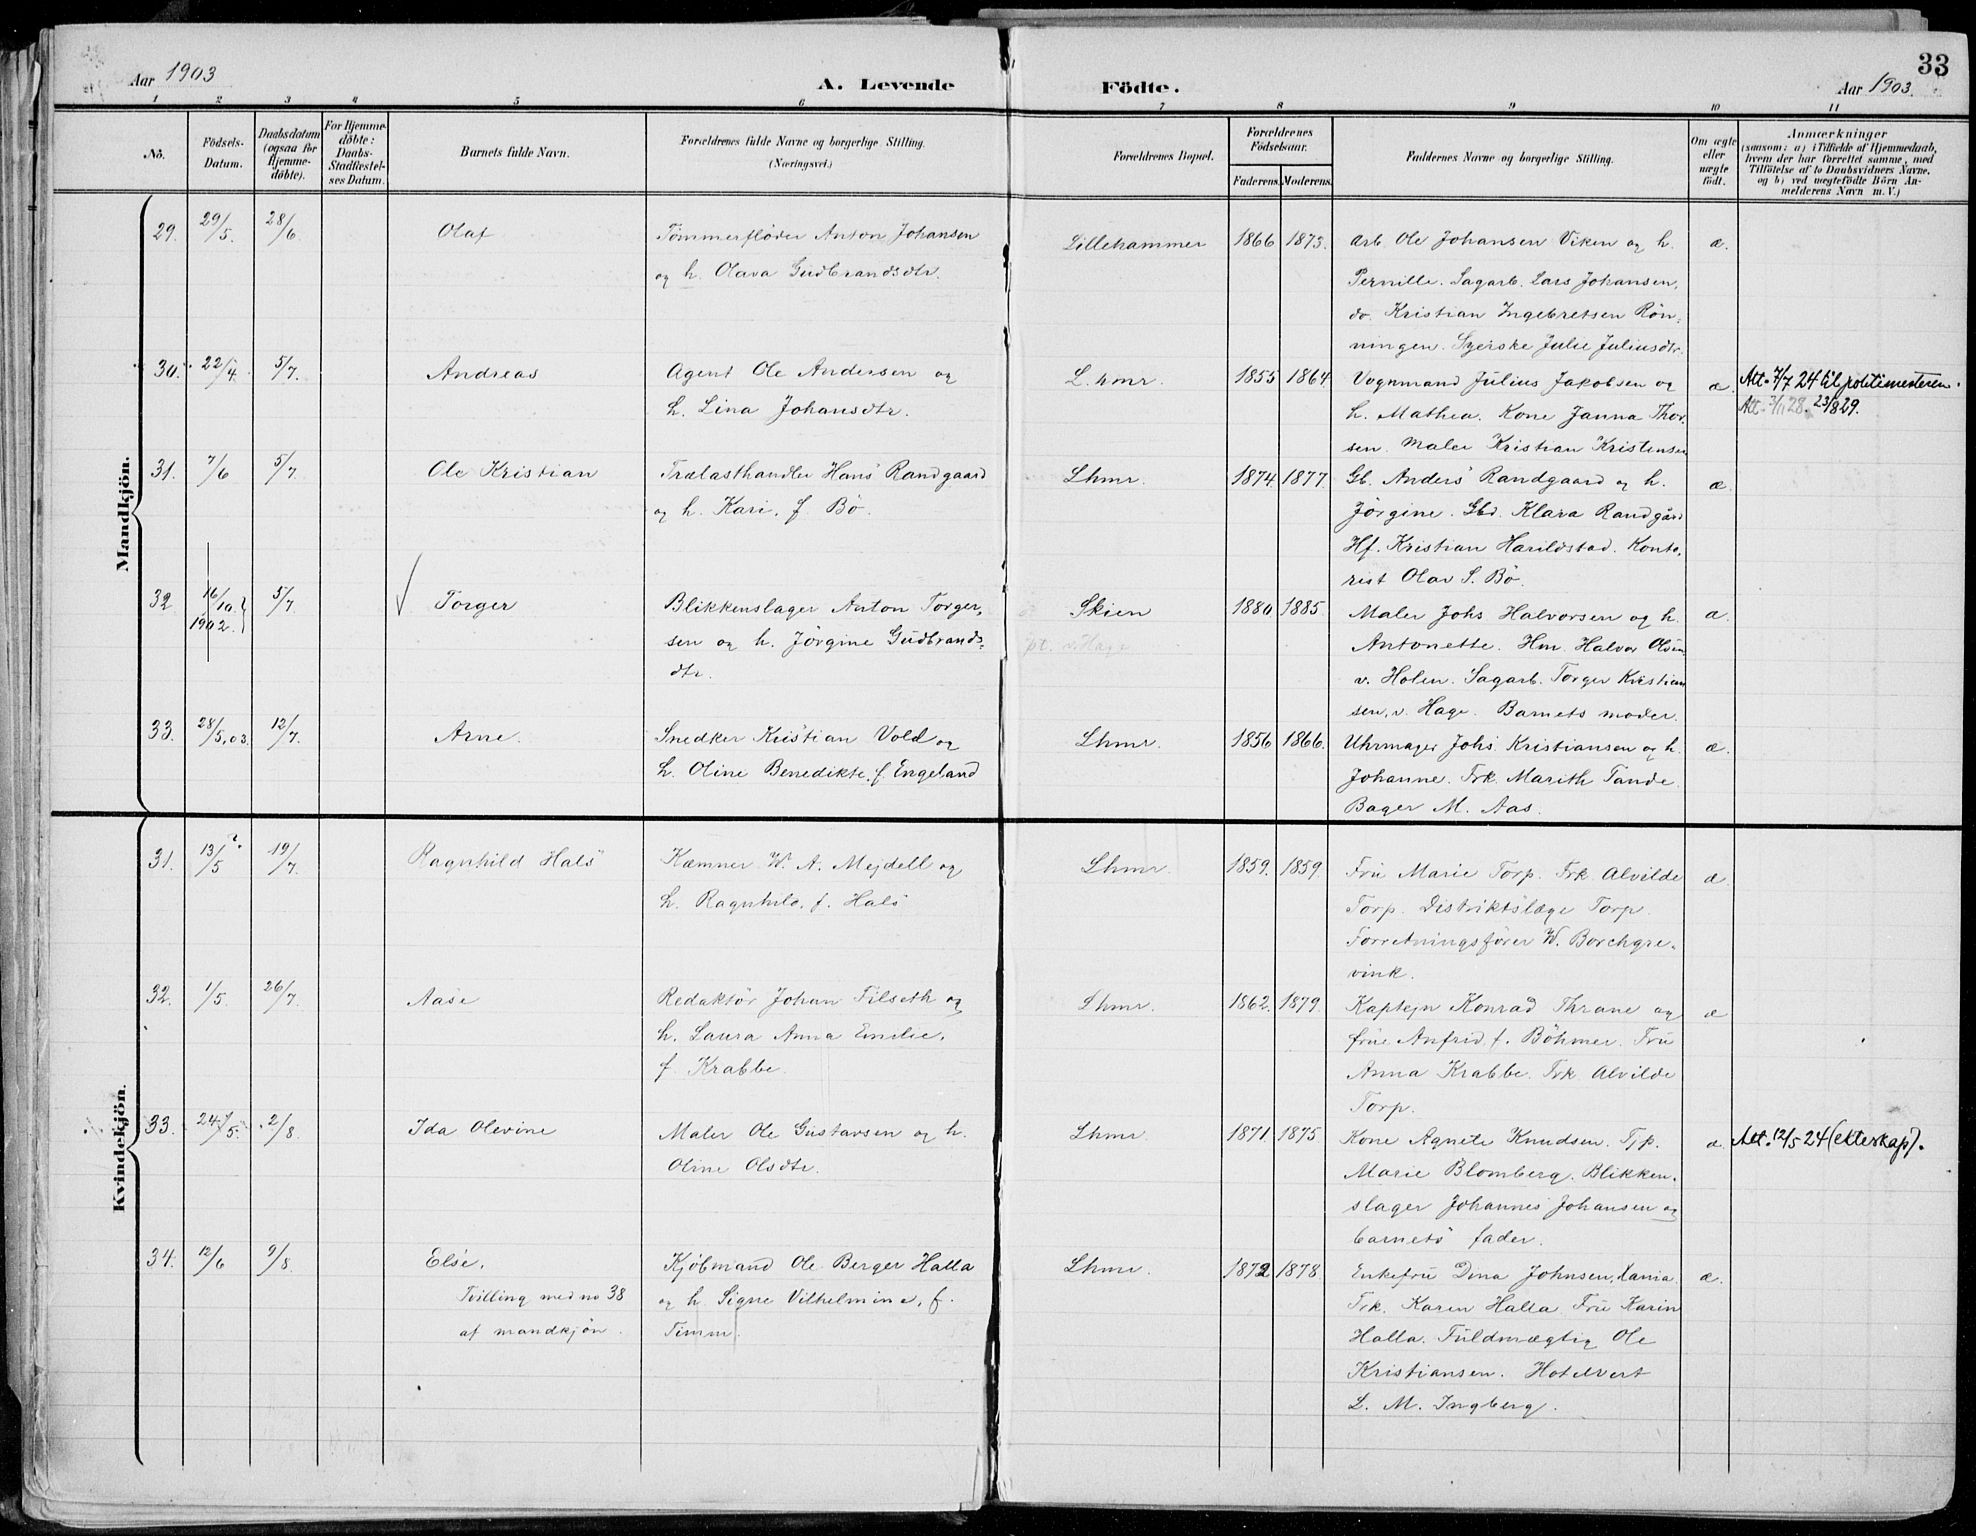 33
Aar 1903
A. Levende Födte.
Aar 1903.
1 2 3 4 5 6 7 8 9 10 11
No.
Födsels-
Datum.
Daabsdatum
(ogsaa for
Hjemme-
döbte).
For Hjemme-
döbte:
Daabs-
Stadfæstel-
ses Datum.
Barnets fulde Navn.
Forældrenes fulde Navne og borgerlige Stilling.
(Næringsvei.)
Forældrenes Bopæl.
Forældrenes
Födselsaar.
Faderens. Moderens.
Faddernes Navne og borgerlige Stilling.
Om ægte
eller
uægte
födt.
Anmærkninger
(saasom: a) i Tilfælde af Hjemmedaab,
hvem der har forrettet samme, med
Tilföielse af to Daabsvidners Navne.
og b) ved uægtefödte Börn An-
melderens Navn m. V.)
Mandkjön.
29. 29/5. 28/6 Olaf Tömmerflöder Anton Johansen Lillehammer 1866 1873. Arb. Ole Johansen Viken og h. æ.
og h. Olava Gudbrandsdtr. Pernille. Sagarb. Lars Johansen,
do. Kristian Ingebretsen Rön-
ningen. Syerske Julie Juliusdtr.
30. 22/4. 5/7. Andreas Agent Ole Andersen og L.hmr. 1855 1864 Vognmand Julius Jakobsen og æ. Att. 7/7 24 til politimesteren.
h. Lina Johansdtr. h. Mathea. Kone Janna Thor- Att. 3/11 28. 23/8 29.
sen. Maler Kristian Kristensen
31. 7/6 5/7. Ole Kristian Trælasthandler Hans Randgaard Lhmr. 1874. 1877. Gb. Anders Randgaard og h. æ.
og h. Kari, f. Bö. Jörgine. Gbd. Klara Randgård
Hf. Kristian Harildstad. Konto-
rist Olav S. Bö.
32. 16/10. 5/7 Torger Blikkenslager Anton Torger- Skien 1880 1885 Maler Johs Halvorsen og h. æ.
1902. sen og h. Jörgine Gudbrands- pt. v. Hage Antonette. Hm. Halvor Olsen
dtr. v. Holen. Sagarb. Torger Kristian
sen, v. Hage. Barnets moder.
33. 28/5, 03. 12/7. Arne. Snedker Kristian Vold og Lhmr. 1856 1866. Uhrmager Johs. Kristiansen og h. æ.
h. Oline Benedikte, f. Engeland Johanne. Frk. Marith Tande.
Bager M. Aas.
Kvindekjön.
31. 13/5 19/7. Ragnhild Hals Kæmner W. A. Mejdell og Lhmr. 1859. 1859. Fru Marie Torp. Frk. Alvilde æ
h. Ragnhild, f. Hals Torp. Distriktslæge Torp.
Forretningsförer W. Borchgre-
vink.
32. 1/5. 26/7 Aase Redaktör Johan Filseth og Lhmr. 1862. 1879. Kaptejn Konrad Thrane og æ
h. Laura Anna Emilie, frue Anfrid, f. Böhmer. Fru
f. Krabbe. Anna Krabbe. Frk. Alvilde
Torp.
33. 24/5. 2/8 Ida Olevine Maler Ole Gustavsen og h. Lhmr. 1871. 1875. Kone Agnete Knudsen. Tjp. æ. Att. 12/5 24 (ekteskap).
Oline Olsdtr. Marie Blomberg. Blikken-
slager Johannes Johansen og
barnets fader.
34. 12/6 9/8. Else. Kjöbmand Ole Berger Halla Lhmr. 1872 1878 Enkefru Dina Johnsen, Kania. æ.
Tvilling med no 38 og h. Signe Vilhelmine, f. Frk. Karen Halla. Fru Karin
af mandkjön. Timm. Halla. Fuldmægtig Ole
Kristiansen. Hotelvert
L. M. Ingberg.